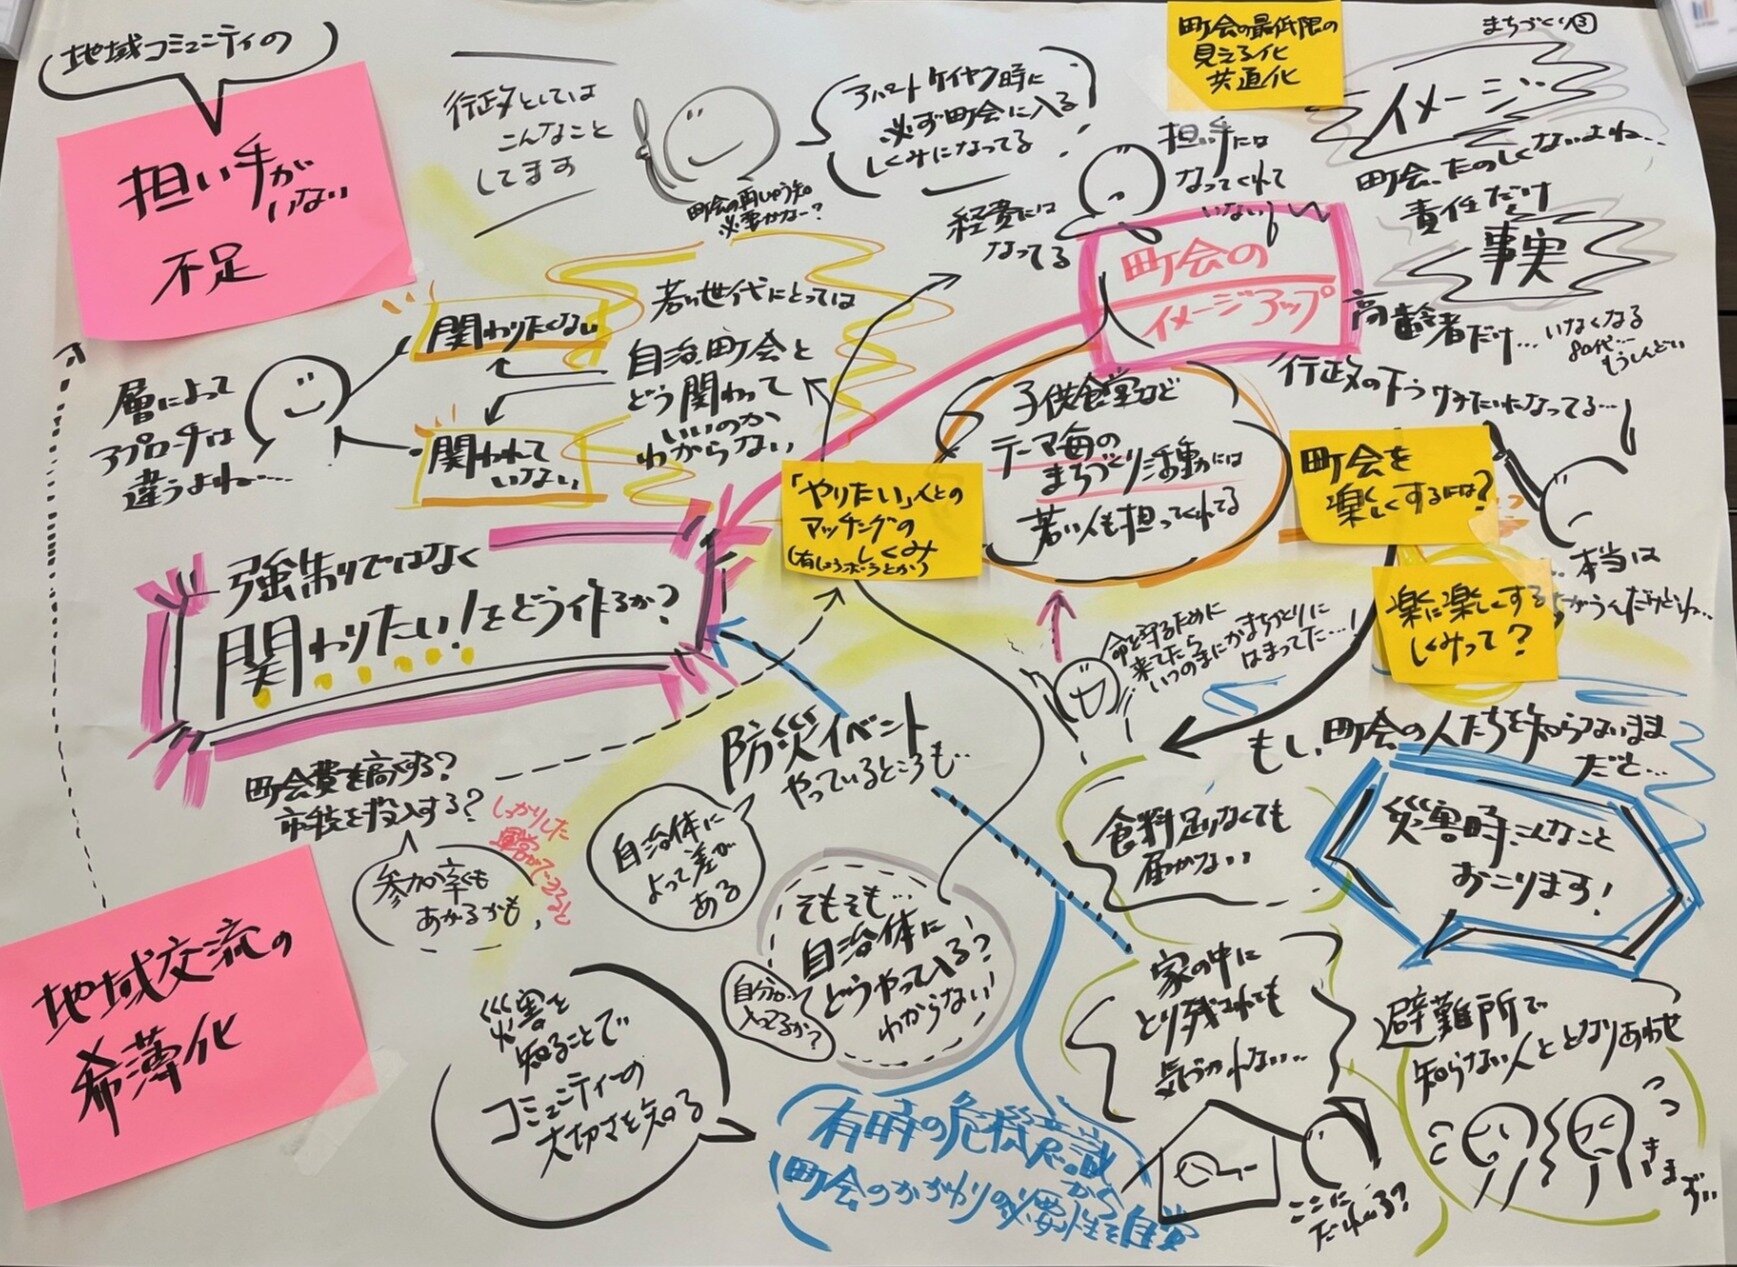 まちづくり③
地域コミュニティの
担い手が
いない
不足
行政としては
こんなこと
してます
町会の再しゅう知
必要かなー?
アパートケイヤク時に
必ず町会に入る
しくみになってる
経費には
なってる
町会の最低限の
見える化
共通化
担い手には
なってくれて
いない
イメージ
町会、たのしくないよね…
責任だけ
事実
高齢者だけ…いなくなる
80代…
もうしんどい
行政の下うけみたいになってる…
町会の
イメージアップ
層によって
アプローチは
違うよね…
関わりたくない
関われて
いけない
若い世代にとっては
自治、町会と
どう関わって
いいのか
わからない
「やりたい」人との
マッチングの
しくみ
(有しょうボラとか)
子供食堂など
テーマ毎の
まちづくり活動には
若い人も担ってくれてる
町会を
楽しくするには?
楽に楽しくする
しくみって?
…本当は
ちがうんだけどね…
強制ではなく
関わりたい!をどう作るか?
町会費を高くする?
市税を投入する?
参加率も
あがるかも
しっかりした
運営ができると
防災イベント
やっているところも…
自治体に
よって差が
ある
そもそも…
自治体に
どうやって入る?
わからない
命を守るために
来てたら
いつのまにかまちづくりに
はまってた…!
もし、町会の人たちを知らないまま
だと…
災害時、こんなこと
おこります!
食料足りなくても
届かない
家の中に
とり残されても
気づかれない…
ここに
だれいる?
避難所で
知らない人ととなりあわせ
きまずい
地域交流の
希薄化
災害を
知ることで
コミュニティーの
大切さを知る
有時の危機意識
から
町会のかかわりの必要性を自覚